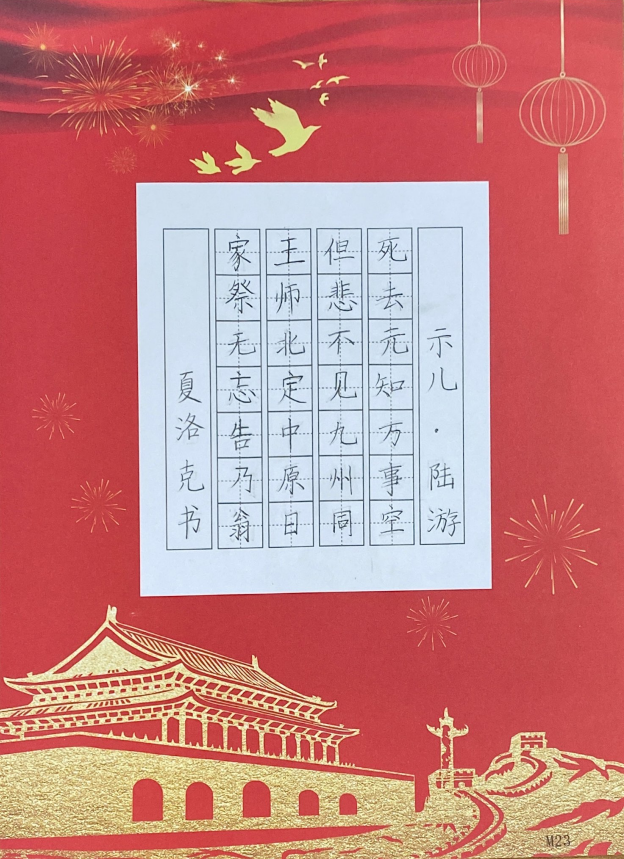 示儿·陆游
死去元知万事空
但悲不见九州同
王师北定中原日
家祭无忘告乃翁
夏洛克书
M23